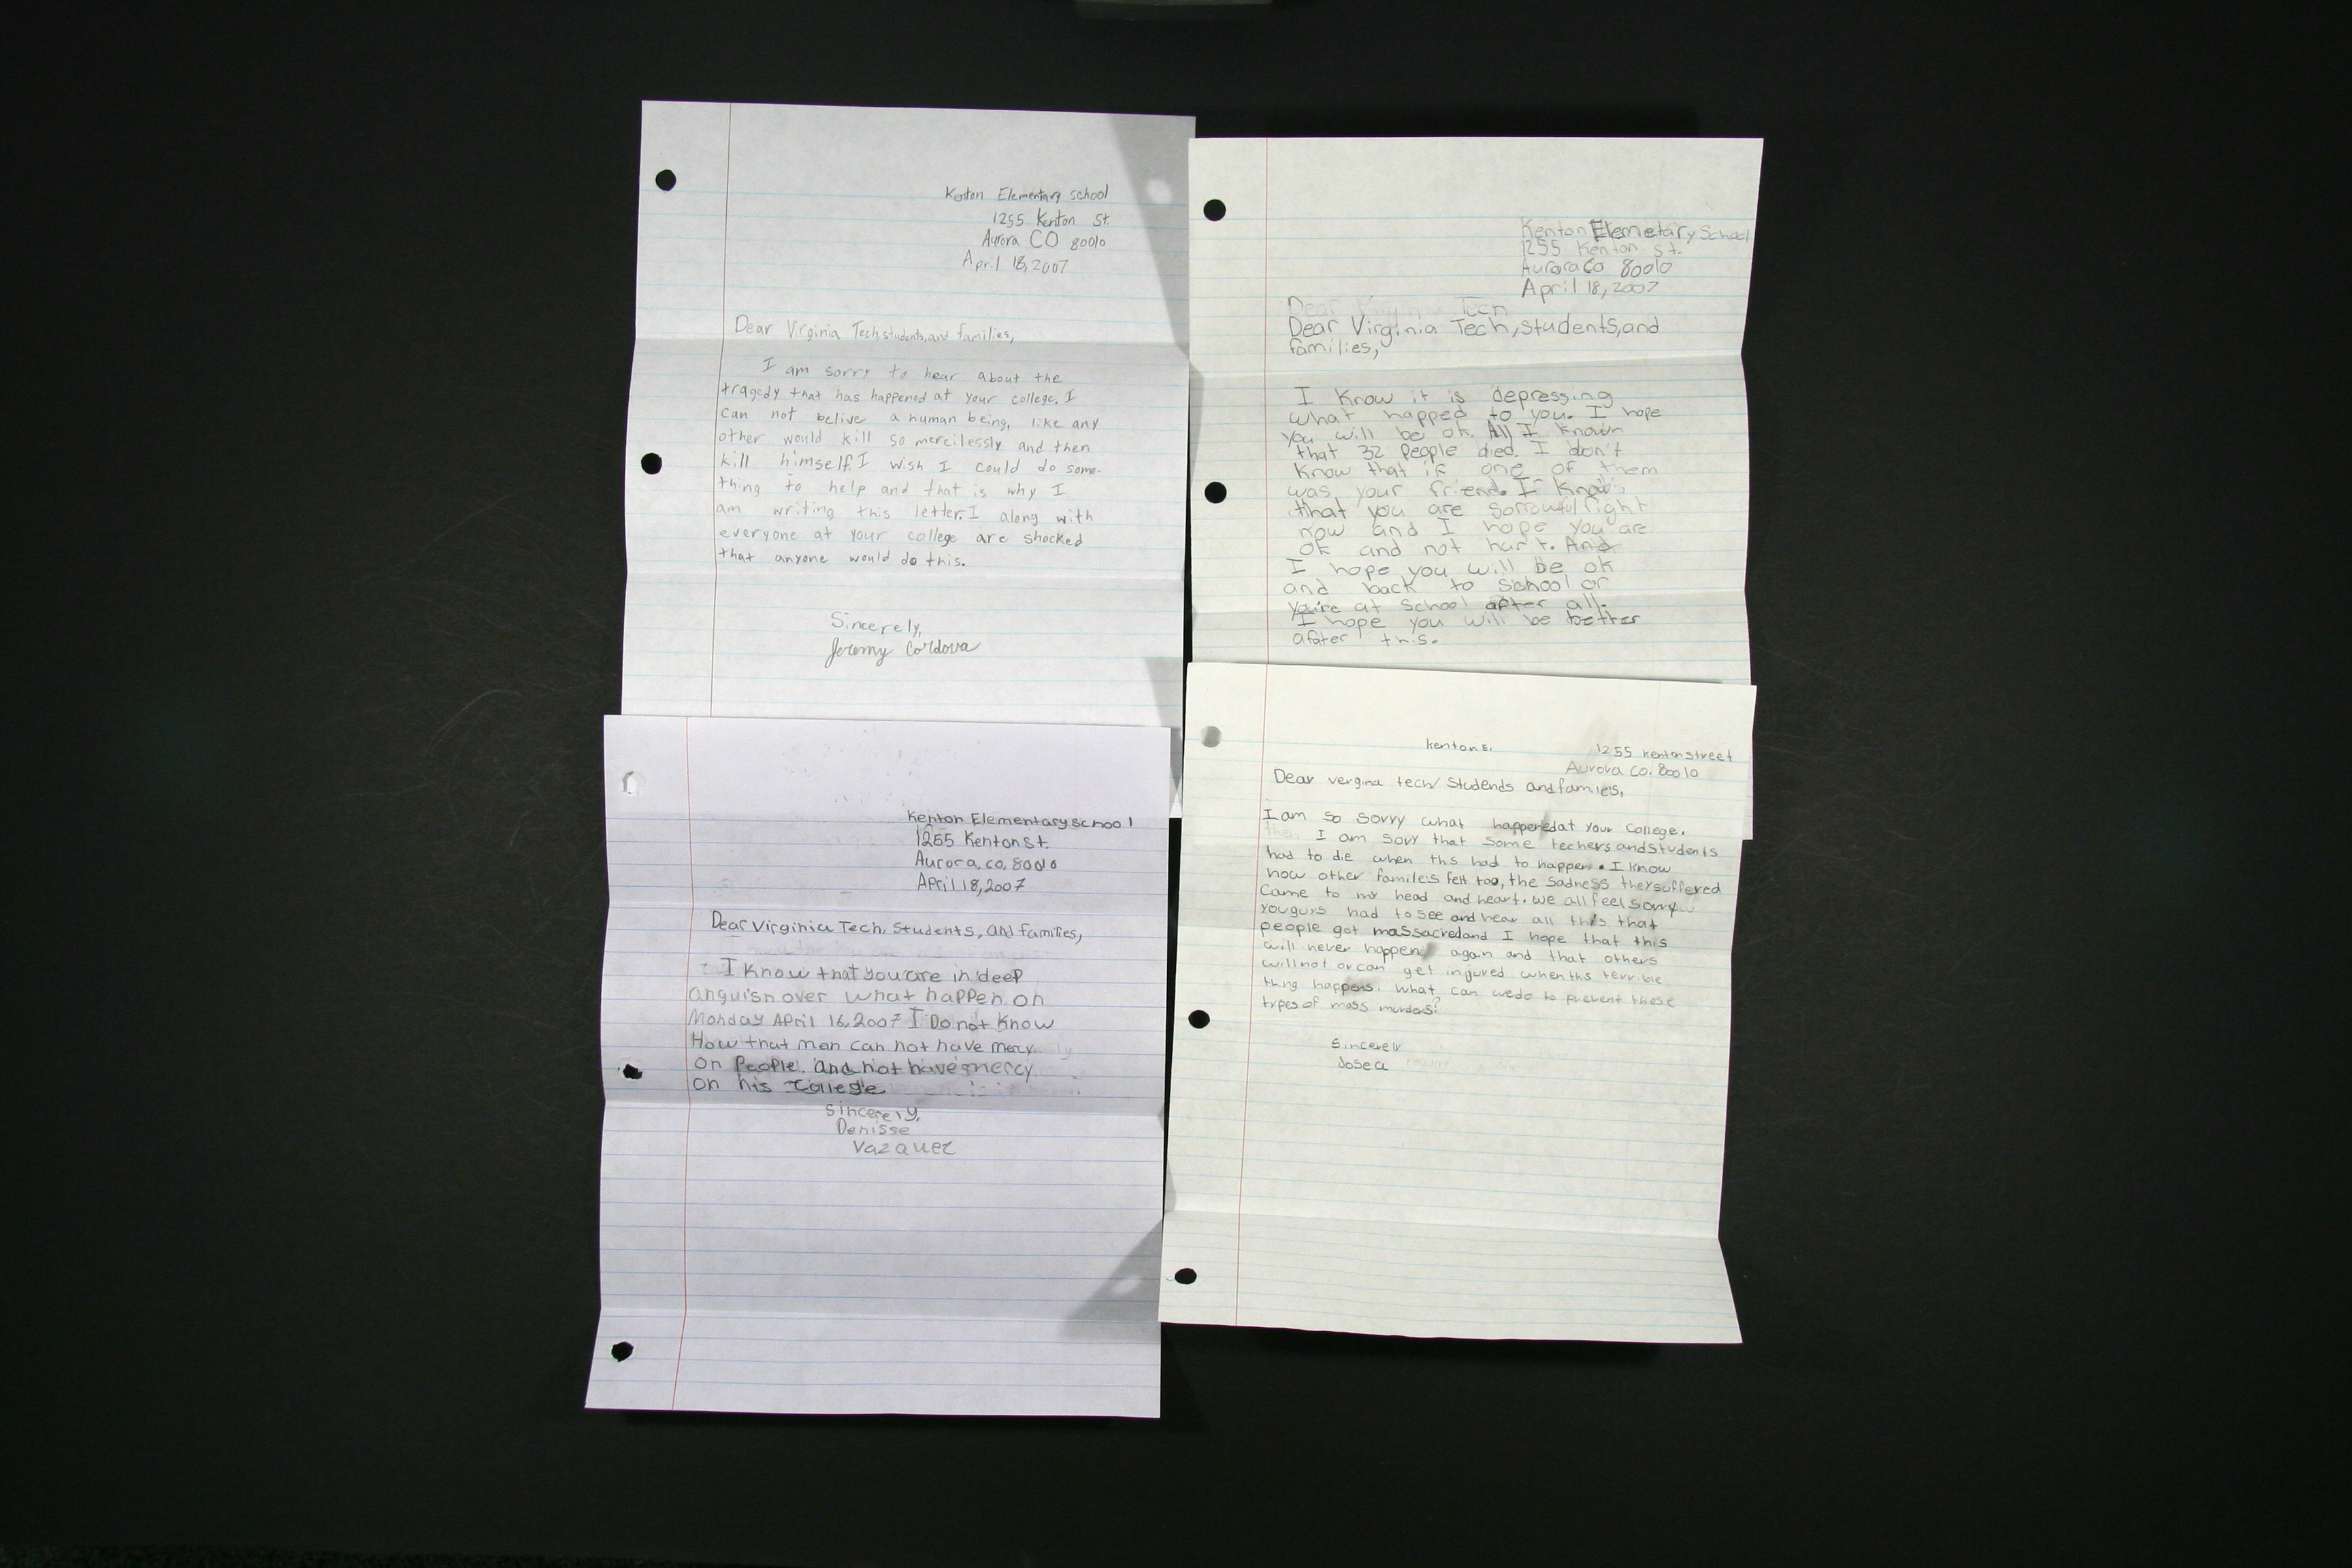 Kenton Elementary School
1255 Kenton St.
Aurora CO 80010
April 18, 2007
Dear Virginia Tech, students, and families,
I am sorry to hear about the
tragedy that has happened at your college. I
can not belive a human being, like any
other would kill so mercilessly and then
kill himself. I wish I could do some-
thing to help and that is why I
am writing this letter. I along with
everyone at your college are shocked
that anyone would do this.
Sincerely,
Jeremy Cordova
Kenton Elemetary School
1255 Kenton St.
Aurora Co 80010
April 18, 2007
Dear Tech
Dear Virginia Tech, students, and
families,
I know it is depressing
what happed to you. I hope
you will be ok. All I known
that 32 people died. I don't
know that if one of them
was your friend. I know
that you are sorrowful right
now and I hope you are
ok and not hurt. And
I hope you will be ok
and back to school or
you're at school after all.
I hope you will be better
afater this.
Kenton Elementary school
1255 Kenton St.
Aurora, co, 80010
April 18, 2007
Dear Virginia Tech, Students, and families,
I know that you are in deep
anguish over what happen on
Monday April 16, 2007 I Do not know
How that man can not have mercy
on People. and not have mercy
on his college
sincerely,
Denisse
Vazquez
Kenton E. 1255 kenton street
Aurora co. 80010
Dear vergina tech/ Studends and familes,
I am so sorry what happened at your college.
I am sory that some techers and students
had to die when this had to happen. I know
how other famile's felt too, the sadness they suffered
came to my head and heart. we all feel sorry
you guys had to see and hear all this that
people got massacred and I hope that this
will never happen again and that others
will not or can get injured when this terrible
thing happens. What can we do to prevent these
types of mass murders?
Sincerely
Jose a